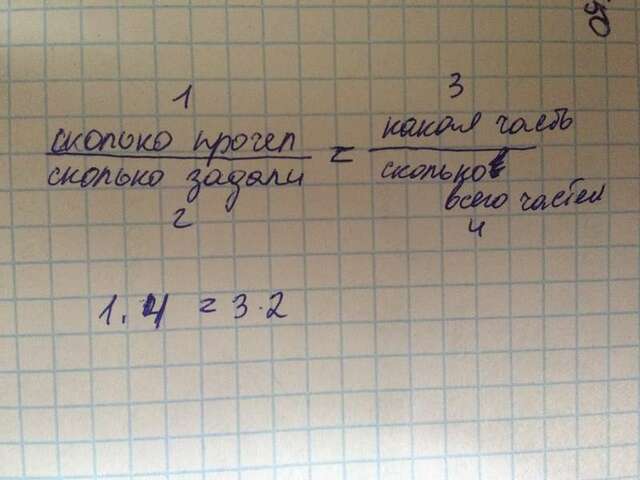 1 3
сколько прочел = какая часть
сколько задали сколько всего частей
2 4
1 · 4 = 3 · 2